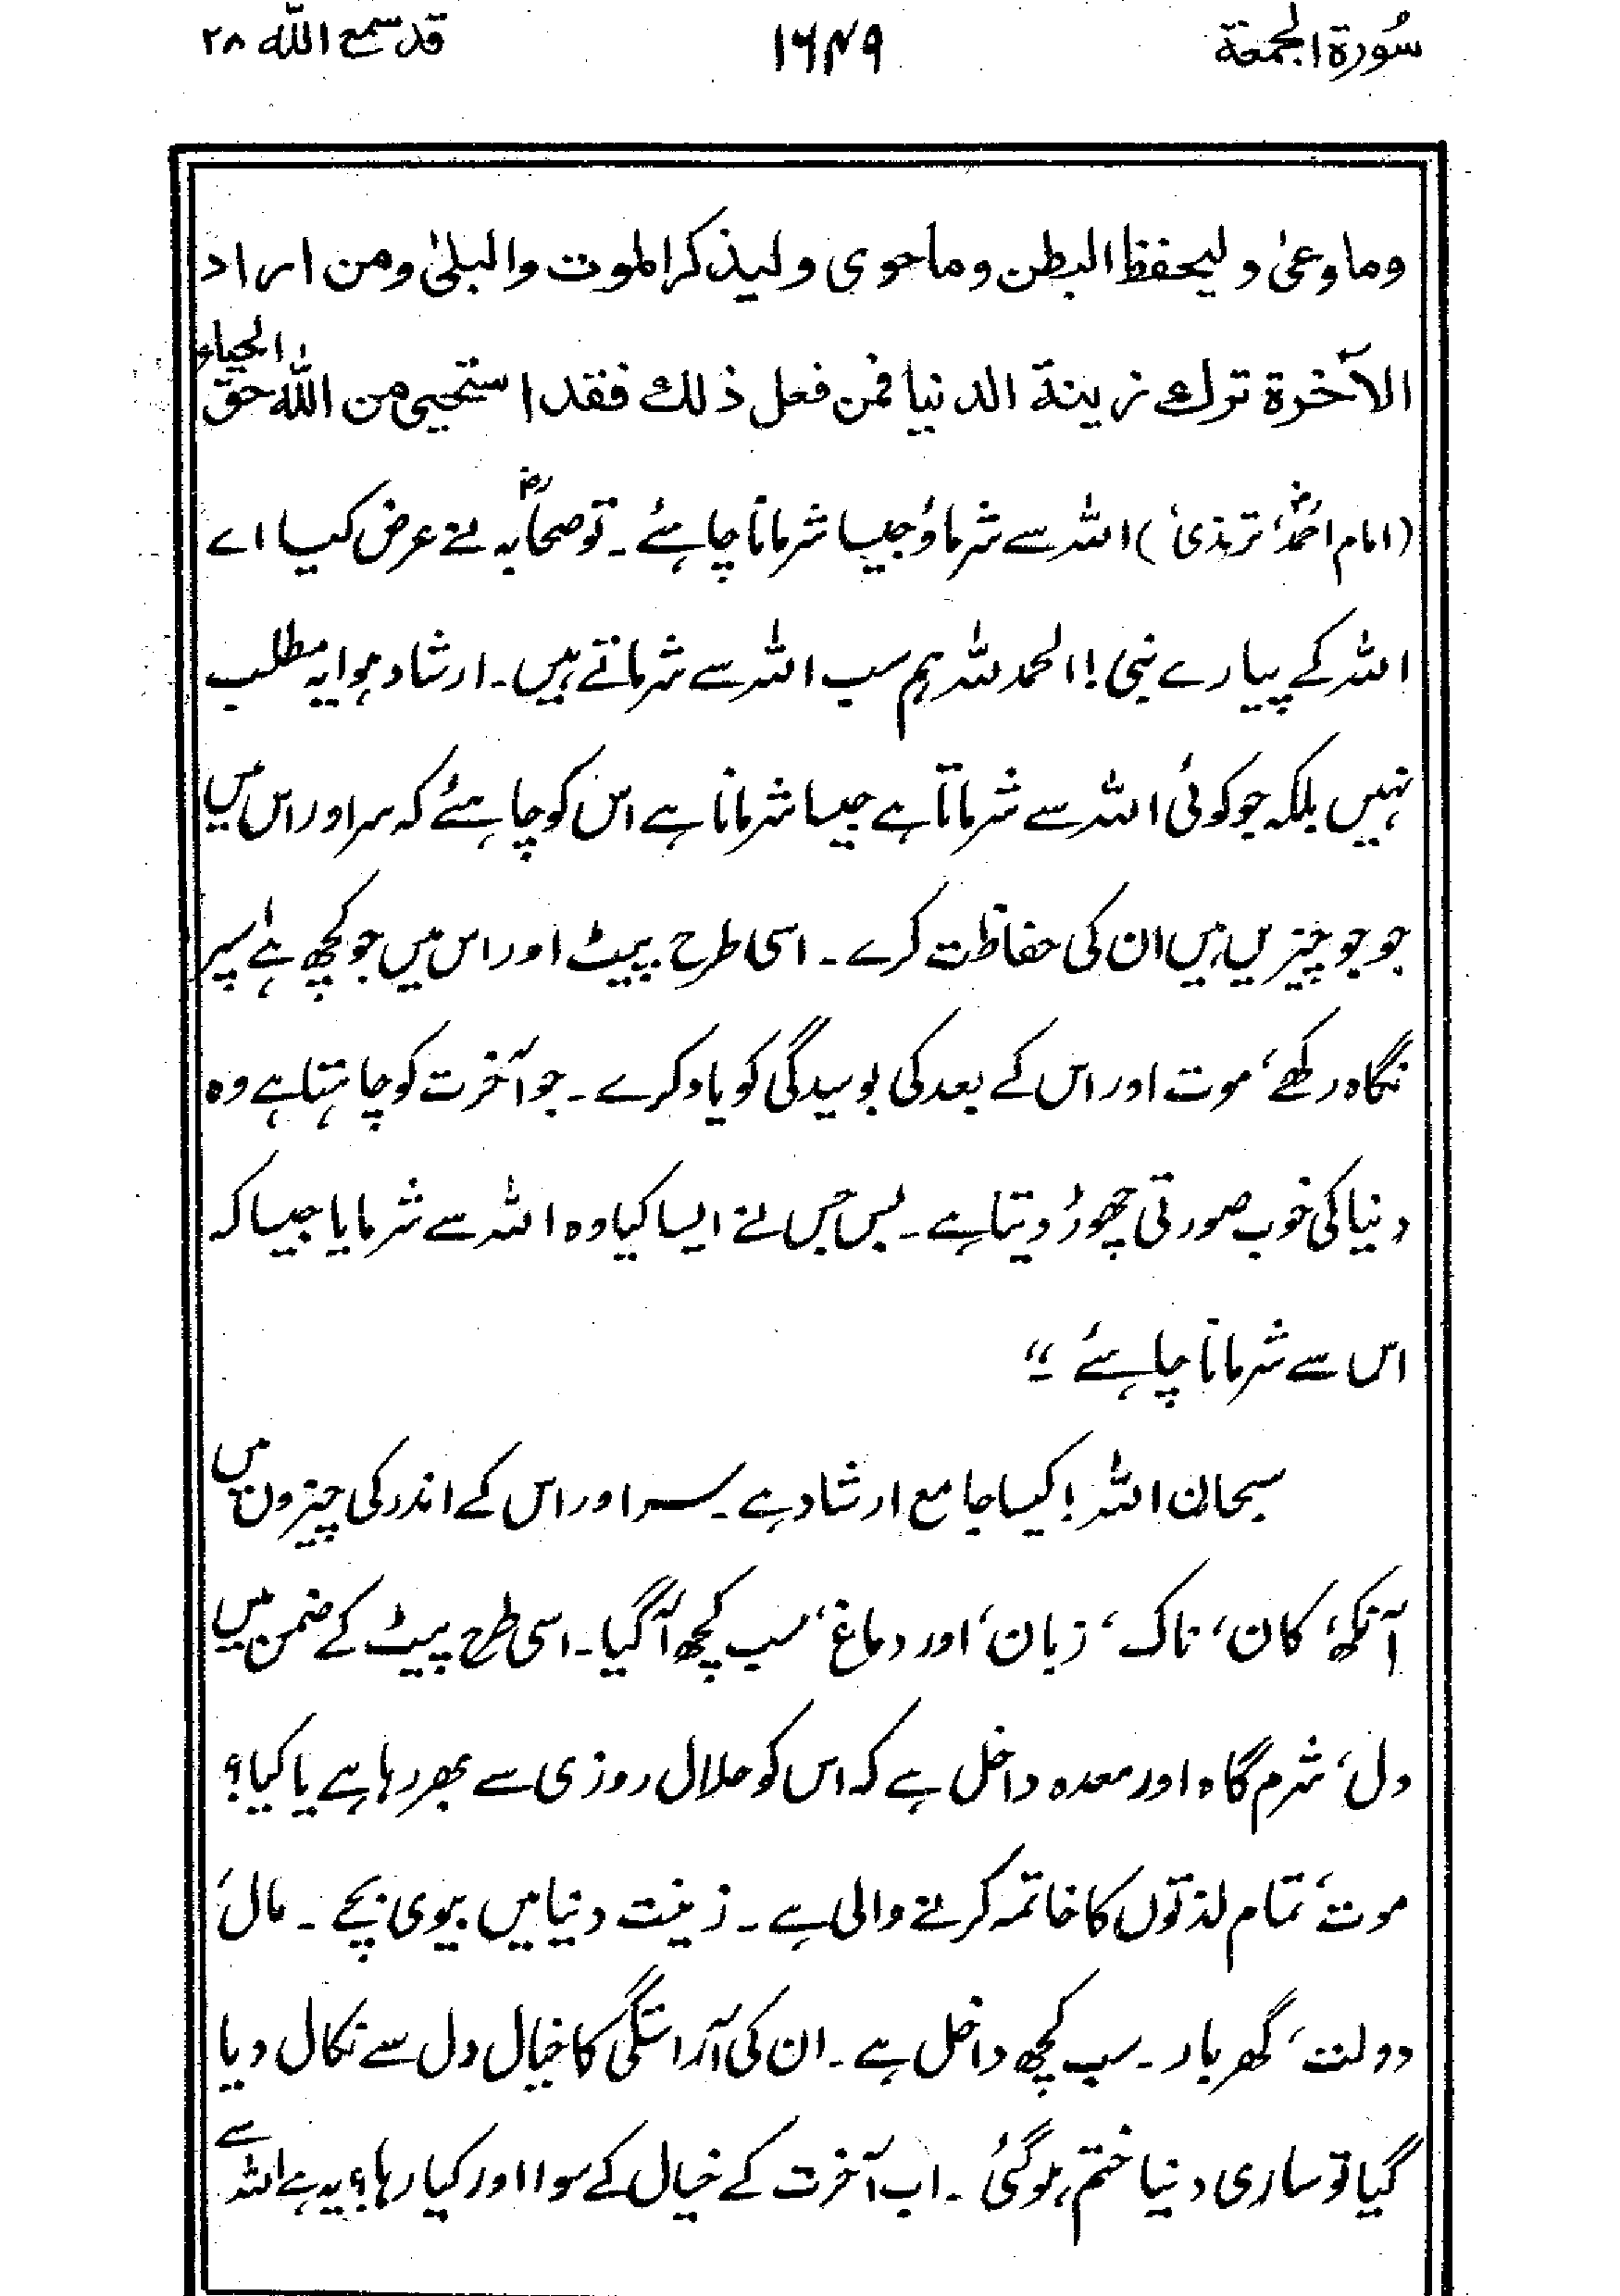 سُورة الجمعة ۱۶۴۹ قد سمع اللّٰه ۲۸
وما وعیٰ و لیحفظ البطن وما حوی و لیذکر الموت والبلیٰ ومن اراد
الآخرة ترك زینة الدنیا فمن فعل ذلك فقد استحیی من اللّٰه حق الحیاء
(امام احمدؒ، ترمذی) اللہ سے شرماؤ جیسا شرمانا چاہئے۔ تو صحابہؓ نے عرض کیا اے
اللہ کے پیارے نبی! الحمد للہ ہم سب اللہ سے شرماتے ہیں۔ ارشاد ہوا یہ مطلب
نہیں بلکہ جو کوئی اللہ سے شرماتا ہے جیسا شرمانا ہے اس کو چاہئے کہ سر اور اس میں
جو جو چیزیں ہیں ان کی حفاظت کرے۔ اسی طرح پیٹ اور اس میں جو کچھ ہے، پر
نگاہ رکھے، موت اور اس کے بعد کی بوسیدگی کو یاد کرے۔ جو آخرت کو چاہتا ہے وہ
دنیا کی خوب صورتی چھوڑ دیتا ہے۔ پس جس نے ایسا کیا وہ اللہ سے شرمایا جیسا کہ
اس سے شرمانا چاہئے۔"
سبحان اللہ! کیسا جامع ارشاد ہے۔ سر اور اس کے اندر کی چیزوں میں
آنکھ، کان، ناک، زبان، اور دماغ، سب کچھ آ گیا۔ اسی طرح پیٹ کے ضمن میں
دل، شرم گاہ اور معدہ داخل ہے کہ اس کو حلال روزی سے بھر رہا ہے یا کیا؟
موت، تمام لذتوں کا خاتمہ کرنے والی ہے۔ زینت دنیا میں بیوی بچے۔ مال،
دولت، گھر بار۔ سب کچھ داخل ہے۔ ان کی آراستگی کا خیال دل سے نکال دیا
گیا تو ساری دنیا ختم ہو گئی۔ اب آخرت کے خیال کے سوا اور کیا رہا؟ یہ ہے اللہ سے